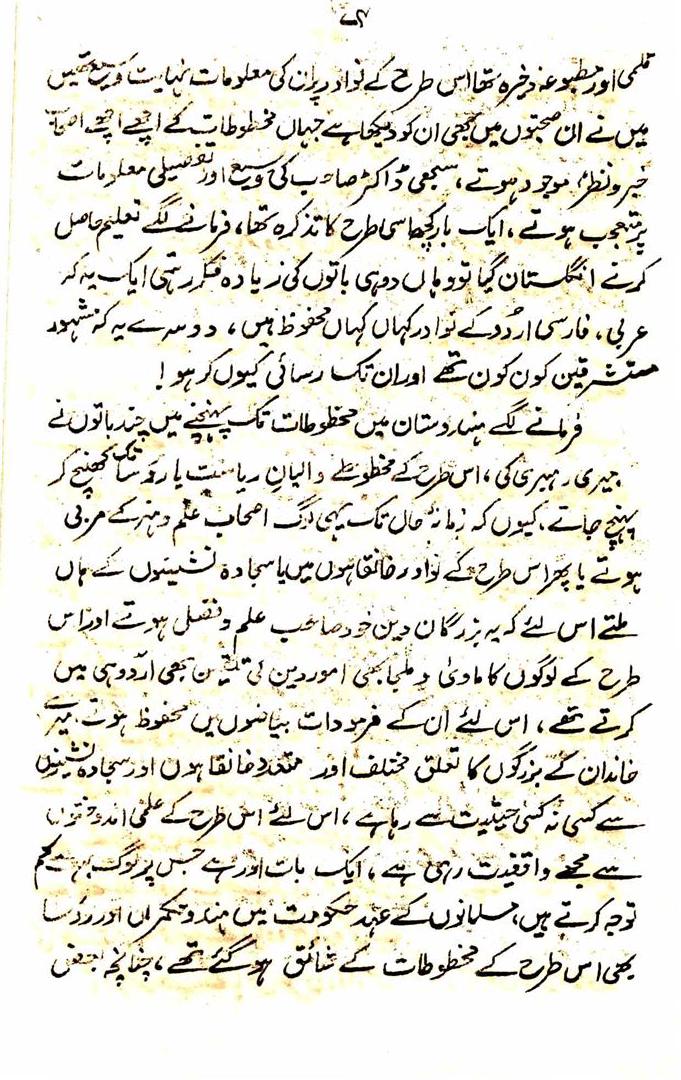 قلمی اور مطبوعہ ذخیرہ تھا اس طرح کے نوادر پر ان کی معلومات نہایت وسیع تھیں
میں نے ان صحبتوں میں بھی ان کو دیکھا ہے جہاں مخطوطات کے اچھے اچھے اصحاب
خبر و نظر موجود ہوتے، سبھی ڈاکٹر صاحب کی وسیع اور تفصیلی معلومات
پر متعجب ہوتے، ایک بار کچھ اسی طرح کا تذکرہ تھا، فرمانے لگے تعلیم حاصل
کرنے انگلستان گیا تو وہاں دو ہی باتوں کی زیادہ فکر رہتی ایک یہ کہ
عربی، فارسی اردو کے نوادر کہاں کہاں محفوظ ہیں، دوسرے یہ کہ مشہور
مستشرقین کون کون تھے اور ان تک رسائی کیوں کر ہو!
فرمانے لگے ہندوستان میں مخطوطات تک پہنچنے میں چند باتوں نے
میری رہبری کی، اس طرح کے مخطوطے والیانِ ریاست یا رؤسا تک کھنچ کر
پہنچ جاتے، کیوں کہ زمانۂ حال تک یہی لوگ اصحاب علم و ہنر کے مربی
ہوتے یا پھر اس طرح کے نوادر خانقاہوں میں یا سجادہ نشینوں کے ہاں
ملتے اس لئے کہ یہ بزرگان دین خود صاحب علم و فضل ہوتے اور اس
طرح کے لوگوں کا ماویٰ و ملجا بھی امور دین کی تلقین بھی اردو ہی میں
کرتے تھے، اس لئے ان کے فرمودات بیاضوں میں محفوظ ہوتے میرے
خاندان کے بزرگوں کا تعلق مختلف اور متعدد خانقاہوں اور سجادہ نشینوں
سے کسی نہ کسی حیثیت سے رہا ہے، اس لئے اس طرح کے علمی اندوختوں
سے مجھے واقفیت رہی ہے، ایک بات اور ہے جس پر لوگ بہت کم
توجہ کرتے ہیں، مسلمانوں کے عہد حکومت میں ہندو حکمراں اور رؤسا
بھی اس طرح کے مخطوطات کے شائق ہو گئے تھے، چنانچہ بعض